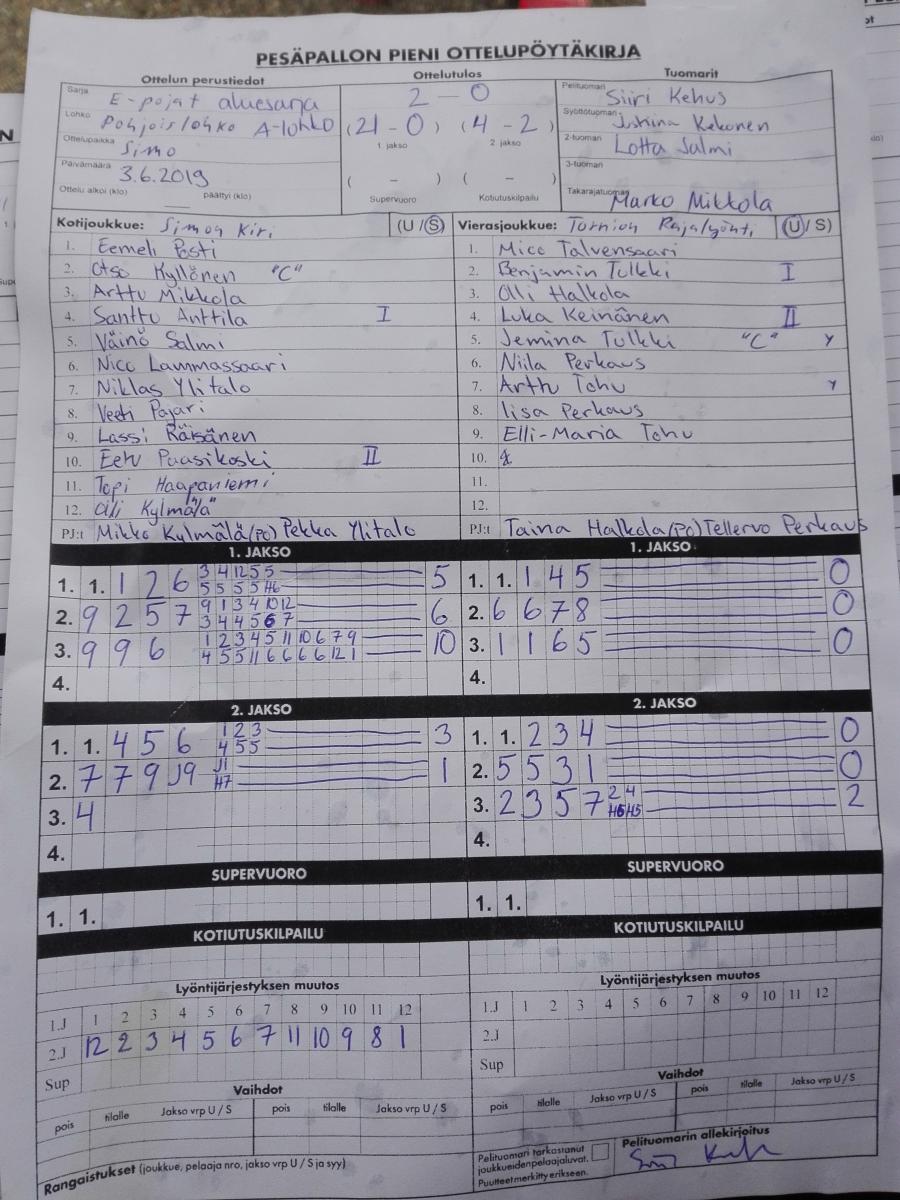 PESÄPALLON PIENI OTTELUPÖYTÄKIRJA
Ottelun perustiedot Ottelutulos Tuomarit
Sarja E-pojat aluesarja 2 - 0 Pelituomari Siiri Kehus
Lohko Pohjoislohko A-lohko (21 - 0) (4 - 2) Syöttötuomari Kekonen
Ottelupaikka Simo 1. jakso 2. jakso 2-tuomari Lotta Salmi
Päivämäärä 3.6.2019 ( - ) ( - ) 3-tuomari
Ottelu alkoi (klo) päättyi (klo) Supervuoro Kotiutuskilpailu Takarajatuomari Marko Mikkola
Kotijoukkue: Simon Kiri (U/S) Vierasjoukkue: Tornion Rajalyönti (U/S)
1. Eemeli Posti 1. Mico Talvensaari
2. Otso Kyllönen "C" 2. Benjamin Tulkki I
3. Arttu Mikkola 3. Olli Halkola
4. Santtu Anttila I 4. Luka Keinänen II
5. Väinö Salmi 5. Jemina Tulkki "C" Y
6. Nico Lammassaari 6. Niila Perkaus
7. Niklas Ylitalo 7. Arttu Tohu Y
8. Veeti Pajari 8. Iisa Perkaus
9. Lassi Räisänen 9. Elli-Maria Tohu
10. Eetu Paasikoski II 10.
11. Topi Haapaniemi 11.
12. Olli Kylmälä 12.
PJ:t Mikko Kylmälä(PJ) Pekka Ylitalo PJ:t Taina Halkola(PJ) Tellervo Perkaus
1. JAKSO 1. JAKSO
1. 1. 1 2 6 3 4 12 5 5 5 1. 1. 1 4 5 0
5 5 5 5 H6
2. 9 2 5 7 9 1 3 4 10 12 6 2. 6 6 7 8 0
3 4 4 5 6 7
3. 9 9 6 1 2 3 4 5 11 10 6 7 9 10 3. 1 1 6 5 0
4 5 5 11 6 6 6 6 12 1
4. 4.
2. JAKSO 2. JAKSO
1. 1. 4 5 6 1 2 3 3 1. 1. 2 3 4 0
4 5 5
2. 7 7 9 J9 J1 1 2. 5 5 3 1 0
H7
3. 4 3. 2 3 5 7 2 4 2
H5 H5
4. 4.
SUPERVUORO SUPERVUORO
1. 1. 1. 1.
KOTIUTUSKILPAILU KOTIUTUSKILPAILU
Lyöntijärjestyksen muutos Lyöntijärjestyksen muutos
1.J 1 2 3 4 5 6 7 8 9 10 11 12 1.J 1 2 3 4 5 6 7 8 9 10 11 12
2.J 12 2 3 4 5 6 7 11 10 9 8 1 2.J
Sup Sup
Vaihdot Vaihdot
pois tilalle Jakso vrp U / S pois tilalle Jakso vrp U / S pois tilalle Jakso vrp U / S pois tilalle Jakso vrp U / S
Rangaistukset (joukkue, pelaaja nro, jakso vrp U / S ja syy) Pelituomari tarkastanut joukkueidenpelaajaluvat. Puutteet merkitty erikseen. Pelituomarin allekirjoitus